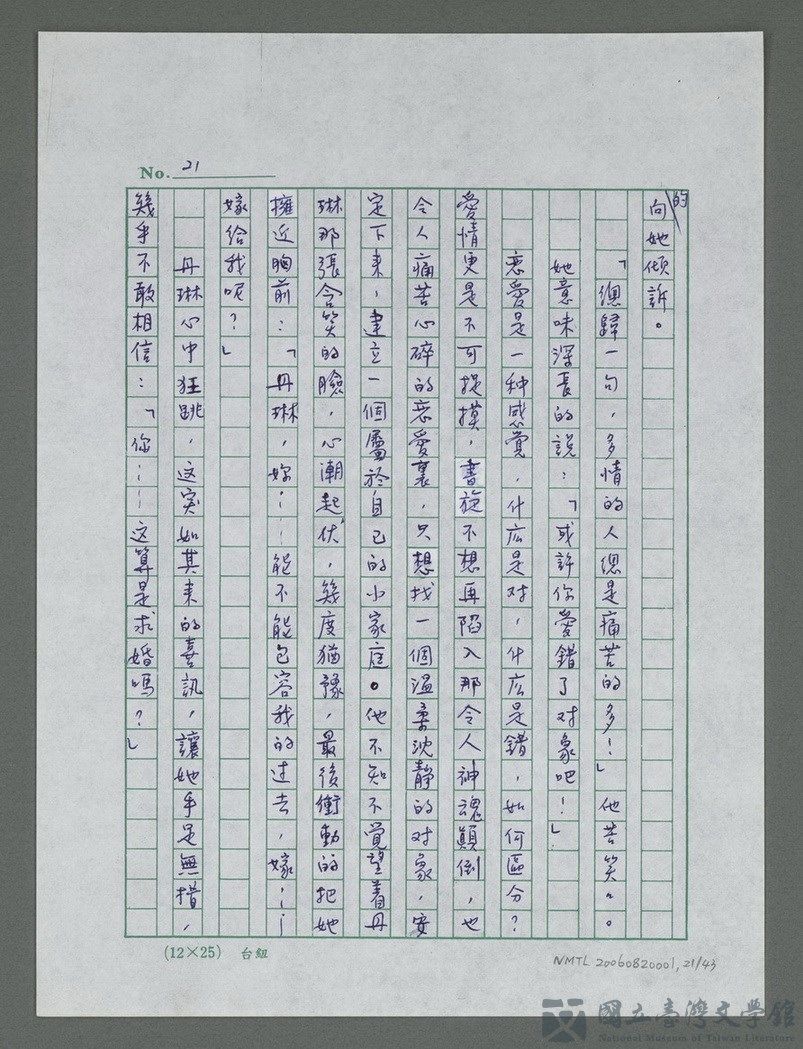 No. 21
的
向她傾訴。
「總歸一句，多情的人總是痛苦的多！」他苦笑。。
她意味深長的說：「或許你愛錯了对象吧！」
恋愛是一种感覚，什広是对，什広是錯，如何區分？
愛情更是不可捉摸，書旋不想再陷入那令人神魂顛倒，也
令人痛苦心碎的恋愛裏，只想找一個溫柔沈靜的对象，安
定下来，建立一個屬於自己的小家庭。他不知不覚望着丹
琳那張含笑的臉，心潮起伏，幾度猶豫，最後衝動的把她
擁近胸前：「丹琳，妳……能不能包容我的过去，嫁……
嫁給我呢？」
丹琳心中狂跳，这突如其来的喜訊，讓她手足無措，
幾乎不敢相信：「你……这算是求婚嗎？」
(12×25) 台組
NMTL 20060820001, 21/43
國立臺灣文學館
National Museum of Taiwan Literature